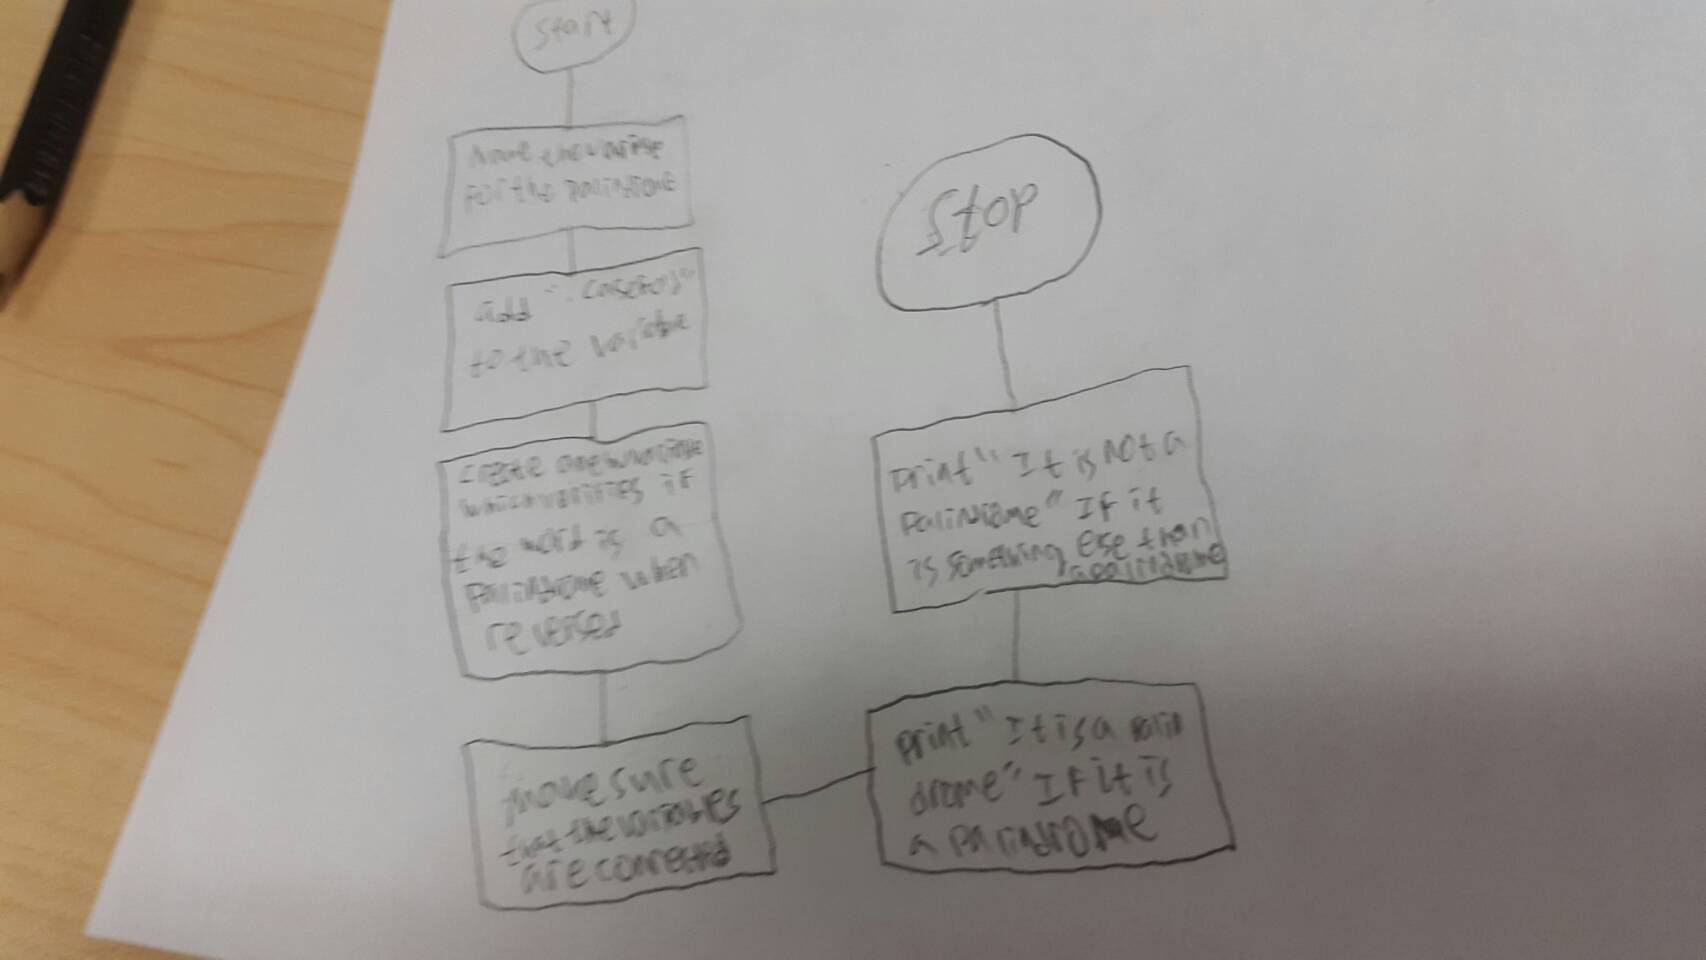 Start
Name the variable
for the palindrome
add ".casefold"
to the variable
create a new variable
which verifies if
the word is a
palindrome when
reversed
make sure
that the variables
are connected
print "It is a palin
drome" If it is
a palindrome
print "It is not a
palindrome" If it
is something else than
a palindrome
Stop